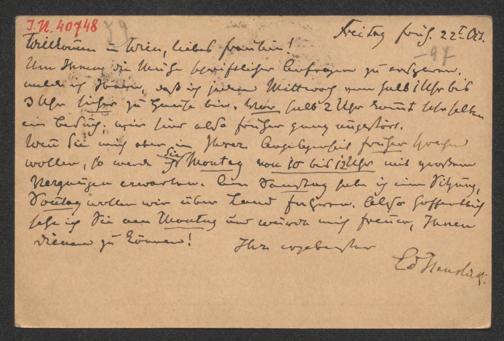 I.N. 40748
Freitag früh 22t Oct.
-97
Willkomm in Wien, liebes Fräulein!
Um Ihnen die Mühe brieflicher Anfragen zu ersparen,
melde ich Ihnen, daß ich jeden Mittwoch von halb 1 Uhr bis
3 Uhr sicher zu Hause bin. Vor halb 2 Uhr kommt sehr selten
ein Besuch, wir sind also früher ganz ungestört.
Wenn Sie mich aber in Ihrer Angelegenheit früher sprechen
wollen, so werde ich Sie Montag von 10 bis 12 Uhr mit großem
Vergnügen erwarten. Am Samstag habe ich eine Sitzung,
Sonntag wollen wir über Land fahren. Also hoffentlich
sehe ich Sie am Montag und würde mich freuen, Ihnen
dienen zu können!
Ihr ergebenster
Ed Hanslick